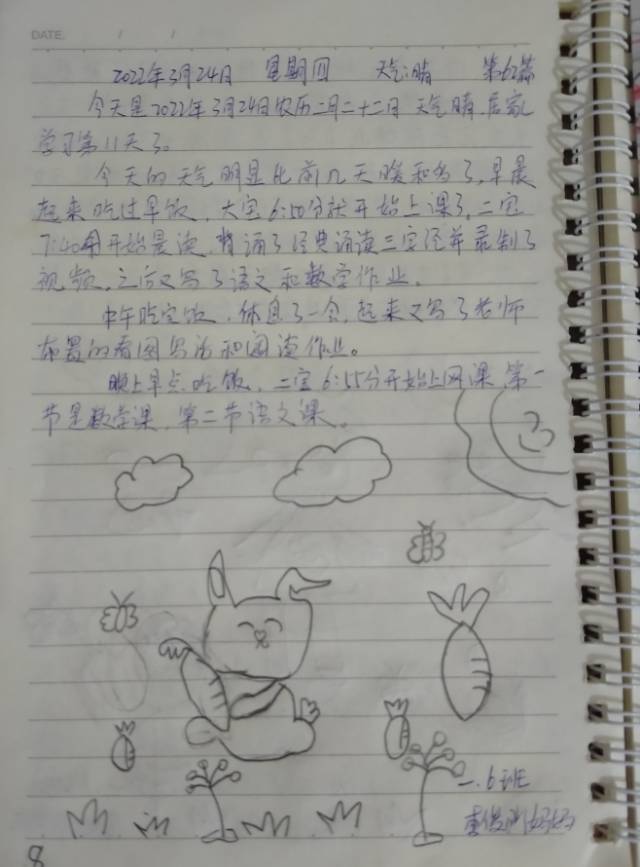 DATE / /
2022年3月24日 星期四 天气:晴 第62篇
今天是2022年3月24日农历二月二十二日 天气晴,居家
学习第11天了。
今天的天气明显比前几天暖和多了,早晨
起来吃过早饭,大宝6:50分就开始上课了,二宝
7:40开始晨读,背诵了经典诵读三字经并录制了
视频,之后又写了语文和数学作业。
中午吃完饭,休息了一会,起来又写了老师
布置的看图写话和阅读作业。
晚上早点吃饭,二宝6:55分开始上网课,第一
节是数学课,第二节语文课。
一.6班
妈妈
8